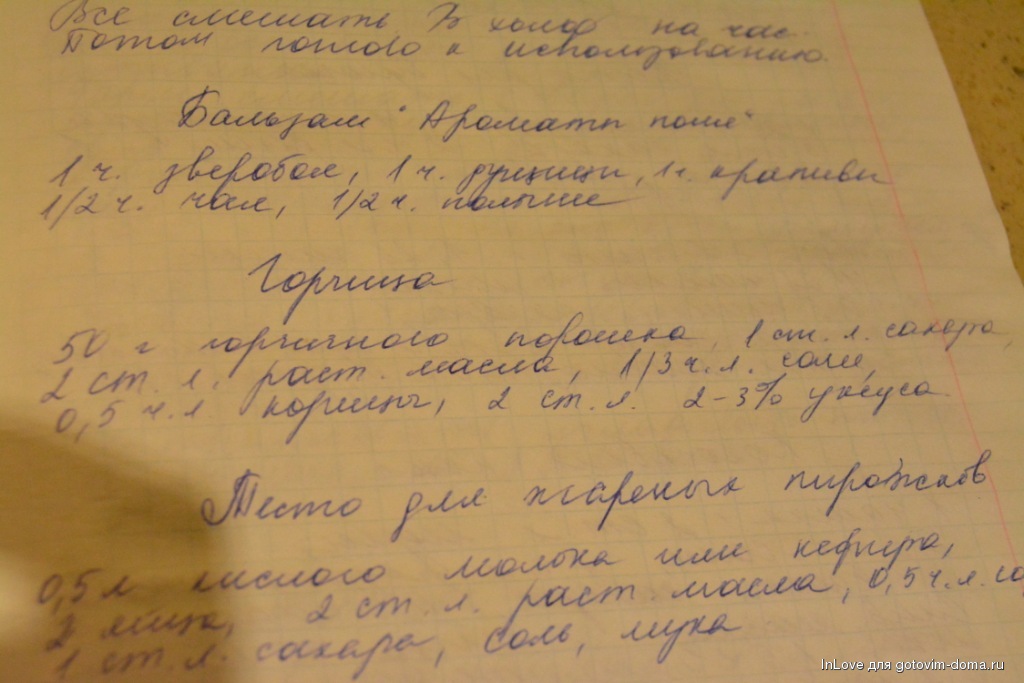 Все смешать В холод на час.
Потом готово к использованию.
Бальзам "Ароматы поля"
1 ч. зверобоя, 1 ч. душицы, 1 ч. крапивы
1/2 ч. чая, 1/2 ч. полыни
Горчица
50 г горчичного порошка, 1 ст. л. сахара,
2 ст. л. раст. масла, 1/3 ч. л. соли,
0,5 ч. л. корицы, 2 ст. л. 2-3% уксуса
Тесто для жареных пирожков
0,5 л кислого молока или кефира,
2 яйца, 2 ст. л. раст. масла, 0,5 ч. л. со
1 ст. л. сахара, соль, мука
InLove для gotovim-doma.ru